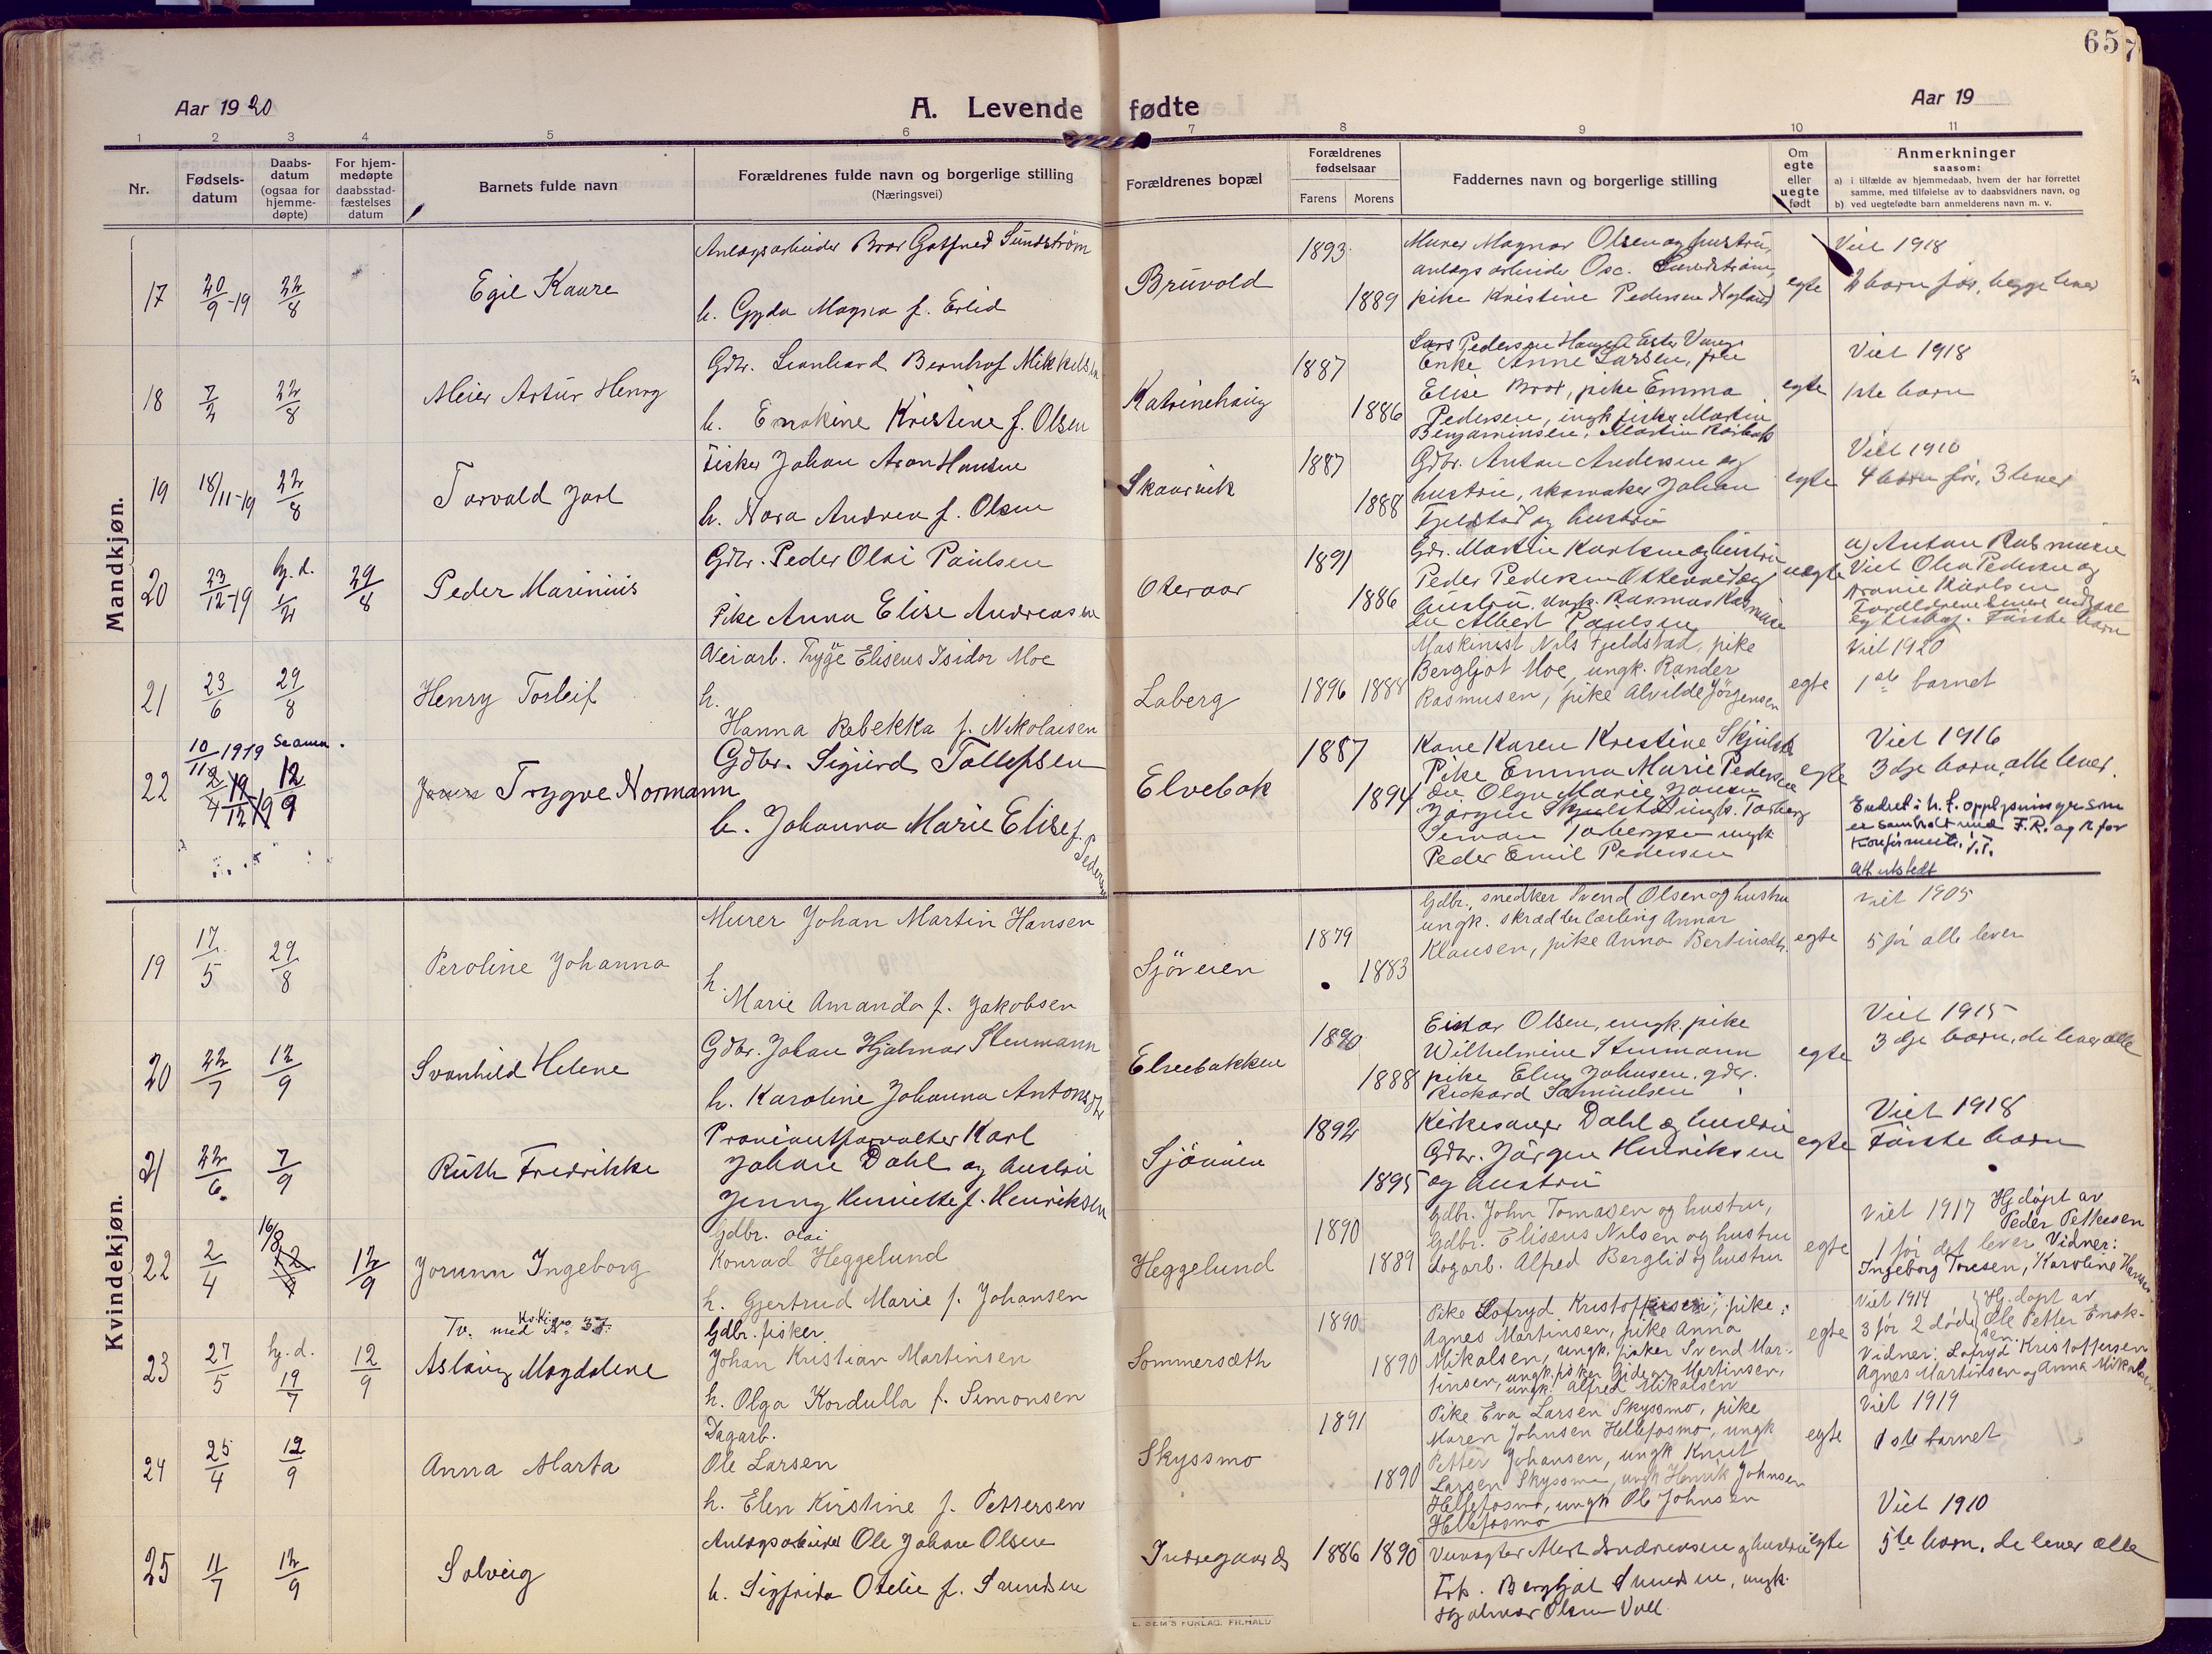 657
Aar 1920
A. Levende fødte
Aar 19
1 2 3 4 5 6 7 8 9 10 11
Nr.
Fødsels-
datum
Daabs-
datum
(ogsaa for
hjemme-
døpte)
For hjem-
medøpte
daabsstad-
fæstelses
datum
Barnets fulde navn
Forældrenes fulde navn og borgerlige stilling
(Næringsvei)
Forældrenes bopæl
Forældrenes
fødselsaar
Farens Morens
Faddernes navn og borgerlige stilling
Om
egte
eller
uegte
født
Anmerkninger
saasom:
a) i tilfælde av hjemmedaab, hvem der har forrettet
samme, med tilføielse av to daabsvidners navn, og
b) ved uegtefødte barn anmelderens navn m. v.
Mandkjøn.
17 20/9-19 22/8 Egil Kaare
Anlægsarbeider Bror Gotfred Sundstrøm
h. Gyda Magna f. Erlid
Bruvold 1893 1889
Murer Magnar Olsen og hustru,
anlægsarbeider Osc. Sundstrøm,
pike Kristine Pedersen
egte
Viet 1918
2 barn før, begge lever
18 7/2 22/8 Meier Artur Henry
Gdbr. Leonhard Bernhof Mikkelsen
h. Enokine Kristine f. Olsen
Katrinehaug 1887 1886
Lars Pedersen
Enke Anne Larsen, frue
Elise Brox, pike Emma
Pedersen, ungk. fisker Martin
Benjaminsen, Martin
egte
Viet 1918
1ste barn
19 18/11-19 22/8 Torvald Jarl
Fisker Johan Aron Hansen
h. Nora Andrea f. Olsen
Skaarvik 1887 1888
Gdbr. Anton Andersen og
hustru, skomaker Johan
Fjeldstad og hustru
egte
Viet 1910
4 barn før, 3 lever
20 23/12-19 hj. d. 1/2 29/8 Peder Marinius
Gdbr. Peder Olai Paulsen
Pike Anna Elise Andreassen
Oteraar 1891 1886
Gdr. Martin Karlsen og hustru
Peder Pedersen og
hustru. Ungk. Rasmus Rasmussen
do Albert Paulsen
uegte
a) Anton Rasmussen
Vidt Olea Pedersen og
Karlsen
Forældrene
Første barn
21 23/6 29/8 Henry Torleif
Veiarb. Trygve Eliseus Isidor Moe
h.
Hanna Rebekka f. Nikolaisen
Laberg 1896 1888
Maskinist Nils Fjeldstad, pike
Bergljot Moe, ungk. Rander
Rasmusen, pike Alvilde Jørgensen
egte
Viet 1920
1ste barnet
22 10/11 1919 12/9 Trygve Normann
Gdbr. Sigurd Tollefsen
h. Johanna Marie Elise f. Pedersen
Elvebak 1887 1894
Kone Karen Kristine Skjulstad
Pike Emma Marie Pedersen
do Olga Marie Jansen
Jørgen Skjulstad ungk. Torberg
Simon Torbergsen ungk
Peder Emil Pedersen
egte
Viet 1916
3dje barn, alle lever.
Endret i h. t. opplysninger som
er samholdt med F.R. og K for
Konfirmerte. J.T.
Att utstedt
Kvindekjøn.
19 17/5 29/8 Peroline Johanna
Murer Johan Martin Hansen
h.
Marie Amanda f. Jakobsen
Sjøveien 1879 1883
Gdbr., snedker Svend Olsen og hustru
ungk. skrædderlærling Annar
Klausen, pike Anna Bertinsdtr.
egte
Viet 1905
5 før alle lever
20 22/7 12/9 Svanhild Helene
Gdbr. Johan Hjalmar Stenmann
h. Karoline Johanna Antonsdtr
Elvebakken 1890 1888
Einar Olsen, ungk. pike
Wilhelmine Stenmann
pike Elen Johnsen. gdbr.
Rickard Samuelsen
egte
Viet 1915
3dje barn, de lever alle
21 22/6 7/9 Ruth Fredrikke
Proviantforvalter Karl
Johan Dahl og hustru
Jenny Henriette f. Henriksen
Sjøveien 1892 1895
Kirkesanger Dahl og hustru
Gdbr. Jørgen Henriksen
og hustru
egte
Viet 1918
Første barn
22 2/4 16/8 12/9 Jorunn Ingeborg
Gdbr. Olai
Konrad Heggelund
h. Gjertrud Marie f. Johansen
Heggelund 1890 1889
Gdbr. John Tomasen og hustru,
Gdbr. Elisæus Nilsen og hustru
Dagarb. Alfred Berglid og hustru
egte
Viet 1917 Hj. døpt av
Peder Pettersen
1 før det lever Vidner:
Ingeborg Toresen, Karoline Hansen
Tv. med No 37
23 27/5 hj. d. 19/7 12/9 Aslaug Magdalene
Gdbr. fisker
Johan Kristian Martinsen
h. Olga Kordulla f. Simonsen
Sommersæth 1890 1890
Pike Lofryd Kristoffersen, pike
Agnes Martinsen, pike Anna
Mikalsen, ungk. fisker Svend Mar-
tinsen, ungk. fisker Gideon Martinsen,
ungk. Alfred Mikalsen
egte
Viet 1914 Hj. døpt av
3 før 2 døde Ole Petter Enok-
sen.
Vidner: Lofryd Kristoffersen
Agnes Martinsen og Anna Mikalsen
24 25/4 12/9 Anna Marta
Dagarb.
Ole Larsen
h. Elen Kirstine f. Pettersen
Skyssmo 1891 1890
Pike Eva Larsen Skyssmo, pike
Maren Johnsen Hellefosmo, ungk
Petter Johansen, ungk Knut
Larsen Skyssmo, ungk Henrik Johnsen
Hellefosmo, ungk Ole Johnsen
Hellefosmo
egte
Viet 1919
1ste barnet
25 11/7 12/9 Solveig
Anlægsarbeider Ole Johan Olsen
h. Sigfrida Otelie f. Svendsen
Indregaard 1886 1890
Vunagter Andreassen og hustru
Frk. Bergljot Svendsen, ungk.
Hjalmar Olsen Voll
egte
Viet 1910
5te barn, de lever alle
E. SEM'S FORLAG. FR.HALD